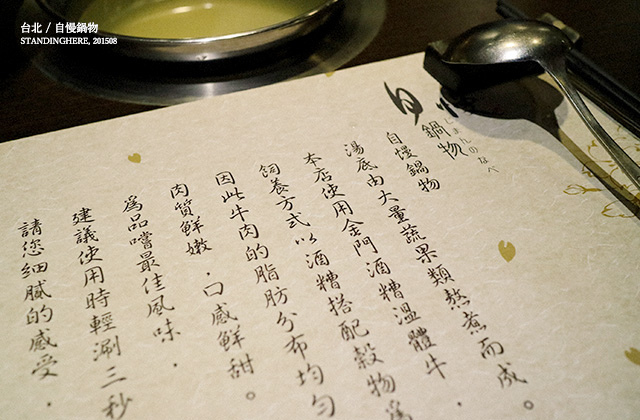 台北 / 自慢鍋物
STANDINGHERE, 201508
鍋物
じまんのなべ
自慢鍋物
湯底由大量蔬果類熬煮而成。
本店使用金門酒糟溫體牛．
飼養方式以酒糟搭配穀物為
因此牛肉的脂肪分布均勻
肉質鮮嫩．口感鮮甜。
為品嚐最佳風味．
建議使用時輕涮三秒
請您細膩的感受．